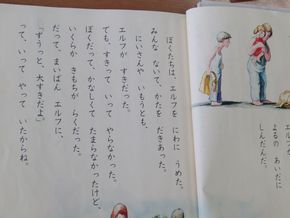 ぼくたちは、エルフを にわに うめた。
みんな ないて、かたを だきあった。
にいさんや いもうとも、
エルフが すきだった。
でも、すきって いって やらなかった。
ぼくだって、かなしくて たまらなかったけど、
いくらか きもちが らくだった。
だって、まいばん エルフに、
「ずうっと、大すきだよ」
って、いって やって いたからね。
エルフが
よるの あいだに
しんだんだ。